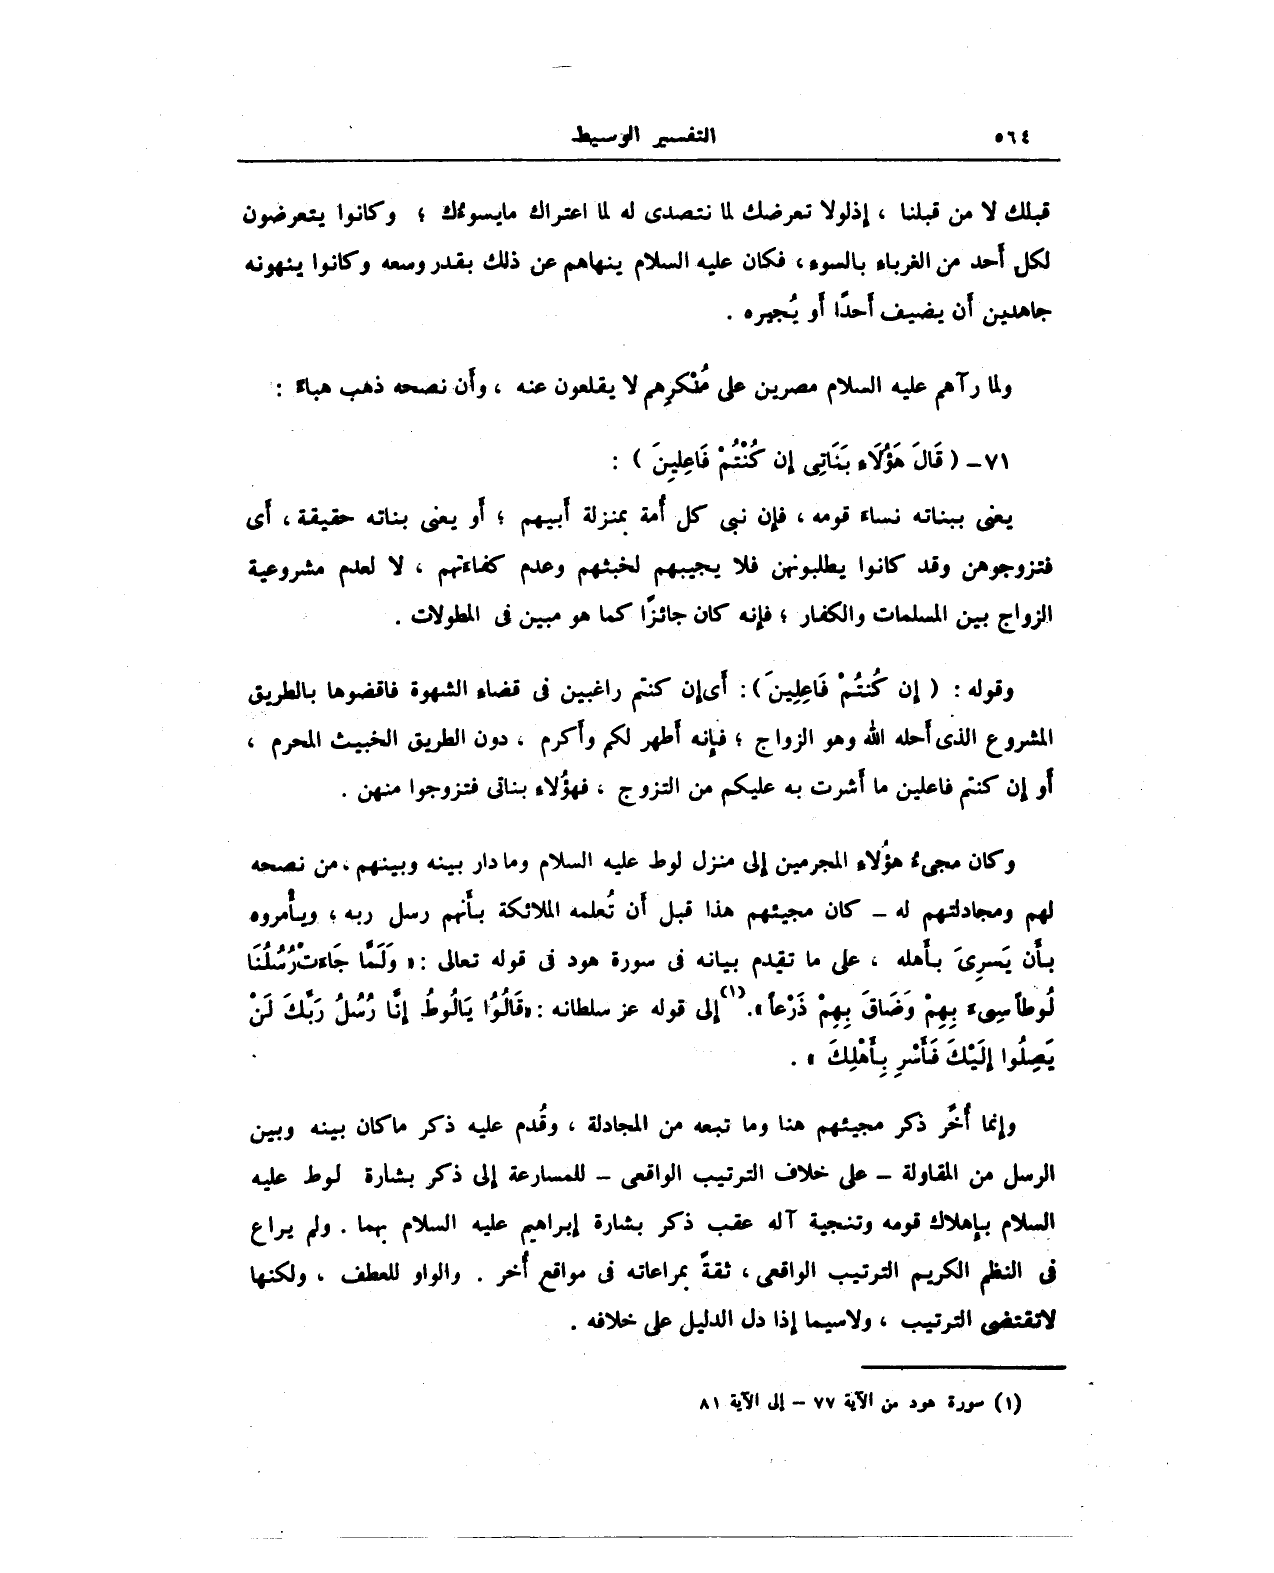 ٥٦٤
التفسير الوسيط
قبلك لا من قبلنا ، إذلولا تعرضك لما نتصدى له لما اعتراك مايسوءُك ؛ وكانوا يتعرضون
لكل أَحد من الغرباء بالسوء ، فكان عليه السلام ينهاهم عن ذلك بقدر وسعه وكانوا ينهونه
جاهدين أَن يضيف أَحدًا أَو يُجيره .
ولما رآهم عليه السلام مصرين على مُنْكرِهم لا يقلعون عنه ، وأَن نصحه ذهب هباءً :
٧١ – ( قَالَ هَؤُلَاءِ بَنَاتِي إِن كُنْتُمْ فَاعِلِينَ ) :
يعنى ببناته نساءَ قومه ، فإن نبى كل أُمة بمنزلة أَبيهم ؛ أَو يعنى بناته حقيقة ، أَى
فتزوجوهن وقد كانوا يطلبونهن فلا يجيبهم لخبثهم وعدم كفاءتهم ، لا لعدم مشروعية
الزواج بين المسلمات والكفار ؛ فإنه كان جائزًا كما هو مبين فى المطولات .
وقوله : ( إِن كُنتُمْ فَاعِلِينَ ) : أَى إن كنتم راغبين فى قضاء الشهوة فاقضوها بالطريق
المشروع الذى أحله الله وهو الزواج ؛ فإنه أَطهر لكم وأَكرم ، دون الطريق الخبيث المحرم ،
أَو إن كنتم فاعلين ما أَشرت به عليكم من التزوج ، فهؤُلاء بناتى فتزوجوا منهن .
وكان مجىءُ هؤُلاء المجرمين إلى منزل لوط عليه السلام وما دار بينه وبينهم ، من نصحه
لهم ومجادلتهم له – كان مجيئهم هذا قبل أَن تُعلمه الملائكة بأَنهم رسل ربه ؛ ويأمروه
بأَن يَسرِىَ بأَهله ، على ما تقدم بيانه فى سورة هود فى قوله تعالى : « وَلَمَّا جَاءَتْ رُسُلُنَا
لُوطاً سِىءَ بِهِمْ وَضَاقَ بِهِمْ ذَرْعاً » .(١) إلى قوله عز سلطانه : « قَالُوا يَالُوطُ إِنَّا رُسُلُ رَبِّكَ لَنْ
يَصِلُوا إِلَيْكَ فَأَسْرِ بِأَهْلِكَ » .
وإنما أُخَّر ذكر مجيئهم هنا وما تبعه من المجادلة ، وقُدم عليه ذكر ماكان بينه وبين
الرسل من المقاولة – على خلاف الترتيب الواقعى – للمسارعة إلى ذكر بشارة لوط عليه
السلام بإهلاك قومه وتنجية آله عقب ذكر بشارة إبراهيم عليه السلام بهما . ولم يراع
فى النظم الكريم الترتيب الواقعى ، ثقةً بمراعاته فى مواقع أُخر . والواو للعطف ، ولكنها
لاتقتضى الترتيب ، ولاسيما إذا دل الدليل على خلافه .
(١) سورة هود من الآية ٧٧ – إلى الآية ٨١